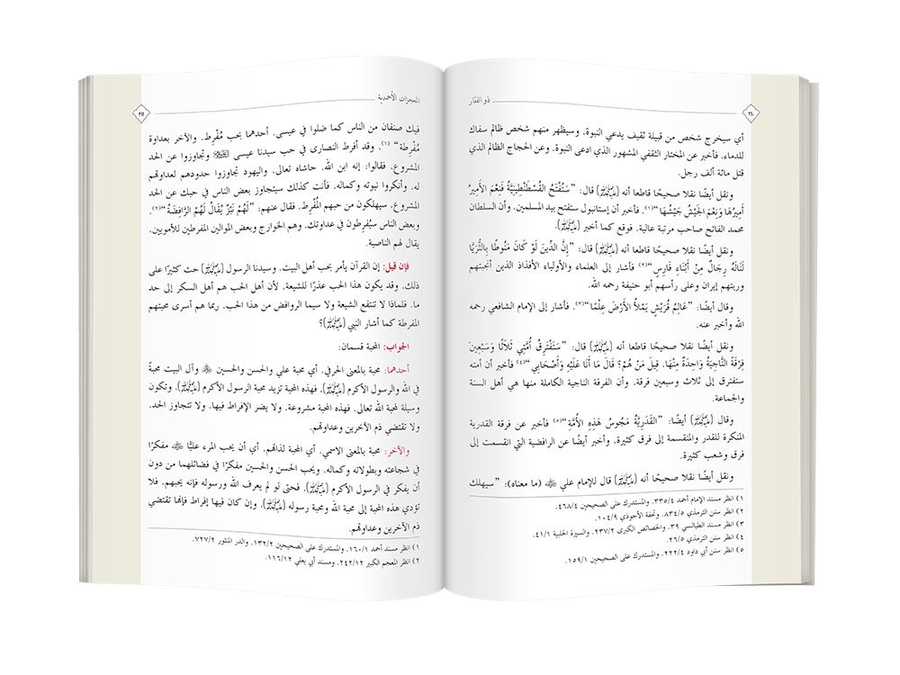 ذو الفقار
٢٤
أي سيخرج شخص من قبيلة ثقيف يدعي النبوة، وسيظهر منهم شخص ظالم سفاك
للدماء. فأخبر عن المختار الثقفي المشهور الذي ادعى النبوة. وعن الحجاج الظالم الذي
قتل مائة ألف رجل.
ونقل أيضًا نقلا صحيحًا قاطعا أنه (ﷺ) قال: "سَتُفْتَحُ الْقُسْطَنْطِينِيَّةُ فَنِعْمَ الْأَمِيرُ
أَمِيرُهَا وَنِعْمَ الْجَيْشُ جَيْشُهَا"(١). فأخبر أن إستانبول ستفتح بيد المسلمين. وأن السلطان
محمد الفاتح صاحب مرتبة عالية. فوقع كما أخبر (ﷺ).
ونقل أيضًا نقلا صحيحًا قاطعا أنه (ﷺ) قال: "إِنَّ الدِّينَ لَوْ كَانَ مَنُوطًا بِالثُّرَيَّا
لَنَالَهُ رِجَالٌ مِنْ أَبْنَاءِ فَارِسَ"(٢) فأشار إلى العلماء والأولياء الأفذاذ الذين أنجبتهم
وربتهم إيران وعلى رأسهم أبو حنيفة رحمه الله.
وقال أيضًا: "عَالِمُ قُرَيْشٍ يَمْلَأُ الْأَرْضَ عِلْمًا"(٣). فأشار إلى الإمام الشافعي رحمه
الله وأخبر عنه.
ونقل أيضًا نقلا صحيحًا قاطعا أنه (ﷺ) قال: "سَتَفْتَرِقُ أُمَّتِي ثَلَاثًا وَسَبْعِينَ
فِرْقَةً النَّاجِيَةُ وَاحِدَةٌ مِنْهَا. قِيلَ مَنْ هُمْ؟ قَالَ مَا أَنَا عَلَيْهِ وَأَصْحَابِي"(٤) فأخبر أن أمته
ستفترق إلى ثلاث وسبعين فرقة. وأن الفرقة الناجية الكاملة منها هي أهل السنة
والجماعة.
وقال (ﷺ) أيضًا: "الْقَدَرِيَّةُ مَجُوسُ هَذِهِ الْأُمَّةِ"(٥) فأخبر عن فرقة القدرية
المنكرة للقدر والمنقسمة إلى فرق كثيرة. وأخبر أيضًا عن الرافضية التي انقسمت إلى
فرق وشعب كثيرة.
ونقل أيضًا نقلا صحيحًا أنه (ﷺ) قال للإمام علي ﷺ (ما معناه): "سيهلك
١) انظر مسند الإمام أحمد ٣٣٥/٤. والمستدرك على الصحيحين ٤٦٨/٤.
٢) انظر سنن الترمذي ٨٣٤/٥. وتحفة الأحوذي ١٠٤/٩.
٣) انظر مسند الطيالسي ٣٩. والخصائص الكبرى ٢٣٧/٢. والسيرة الحلبية ٤١/١.
٤) انظر سنن الترمذي ٢٦/٥.
٥) انظر سنن أبي داود ٢٢٢/٤. والمستدرك على الصحيحين ١٥٩/١.
المعجزات الأحمدية
٢٥
فيك صنفان من الناس كما ضلوا في عيسى. أحدهما بحب مُفْرِط. والآخر بعداوة
مُفْرِطة"(١). وقد أفرط النصارى في حب سيدنا عيسى ﷺ وتجاوزوا عن الحد
المشروع. فقالوا: إنه ابن الله. حاشاه تعالى. واليهود تجاوزوا حدودهم لعداوتهم
له. وأنكروا نبوته وكماله. فأنت كذلك سيتجاوز بعض الناس في حبك عن الحد
المشروع. سيهلكون من حبهم الْمُفْرِط. فقال عنهم: "لَهُمْ نَبْزٌ يُقَالُ لَهُمُ الرَّافِضَةُ"(٢).
وبعض الناس سيُفرطون في عداوتك. وهم الخوارج وبعض الموالين المفرطين للأمويين.
يقال لهم الناصبة.
فإن قيل: إن القرآن يأمر بحب أهل البيت. وسيدنا الرسول (ﷺ) حث كثيرًا على
ذلك. وقد يكون هذا الحب عذرًا للشيعة. لأن أهل الحب هم أهل السكر إلى حد
ما. فلماذا لا تنتفع الشيعة ولا سيما الروافض من هذا الحب. ربما هم أسرى محبتهم
المفرطة كما أشار النبي (ﷺ)؟
الجواب: المحبة قسمان:
أحدهما: محبة بالمعنى الحرفي. أي محبة علي والحسن والحسين ﷺ وآل البيت محبةً
في الله والرسول الأكرم (ﷺ). فهذه المحبة تزيد محبة الرسول الأكرم (ﷺ). وتكون
وسيلة لمحبة الله تعالى. فهذه المحبة مشروعة. ولا يضر الإفراط فيها. ولا تتجاوز الحد.
ولا تقتضي ذم الآخرين وعداوتهم.
والآخر: محبة بالمعنى الاسمي. أي المحبة لذاتهم. أي أن يحب المرء عليًّا ﷺ مفكرًا
في شجاعته وبطولاته وكماله. ويحب الحسن والحسين مفكرًا في فضائلهما من دون
أن يفكر في الرسول الأكرم (ﷺ). فحتى لو لم يعرف الله ورسوله فإنه يحبهم. فلا
تؤدي هذه المحبة إلى محبة الله ومحبة رسوله (ﷺ). وإن كان فيها إفراط فإنها تقتضي
ذم الآخرين وعداوتهم.
١) انظر مسند أحمد ١٦٠/١. والمستدرك على الصحيحين ١٣٢/٢. والدر المنثور ٧٢٧/٢.
٢) انظر المعجم الكبير ٢٤٢/١٢. ومسند أبي يعلى ١١٦/١٢.